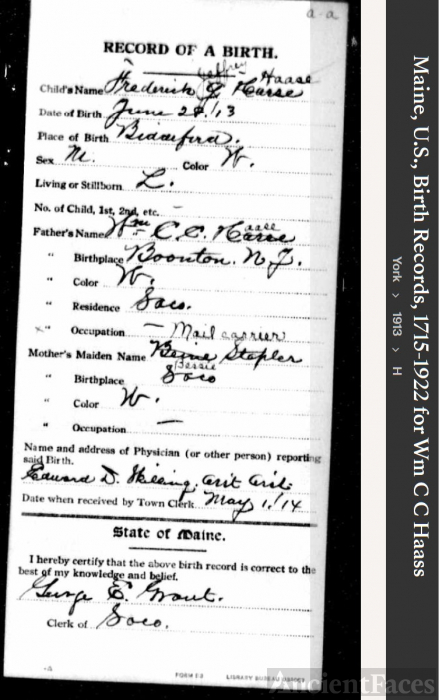 a-a
RECORD OF A BIRTH.
Jeffrey Haase
Child's Name Frederick J Hasse
Date of Birth June 24, 13
Place of Birth Biddeford.
Sex M. Color W.
Living or Stillborn L.
No. of Child, 1st, 2nd, etc. –
aase
Father's Name Wm C. C. Hasse
" Birthplace Boonton. N. J.
" Color W.
" Residence Saco.
" Occupation – Mail carrier
Mother's Maiden Name Stapler
Bessie
" Birthplace Saco
" Color W.
" Occupation —
Name and address of Physician (or other person) reporting
said Birth.
Edward D.
Date when received by Town Clerk May 1, '14
State of Maine.
I hereby certify that the above birth record is correct to the
best of my knowledge and belief.
George E. Grant.
Clerk of Saco.
FORM
LIBRARY BUREAU
Maine, U.S., Birth Records, 1715-1922 for Wm C C Haass
York > 1913 > H
AncientFaces